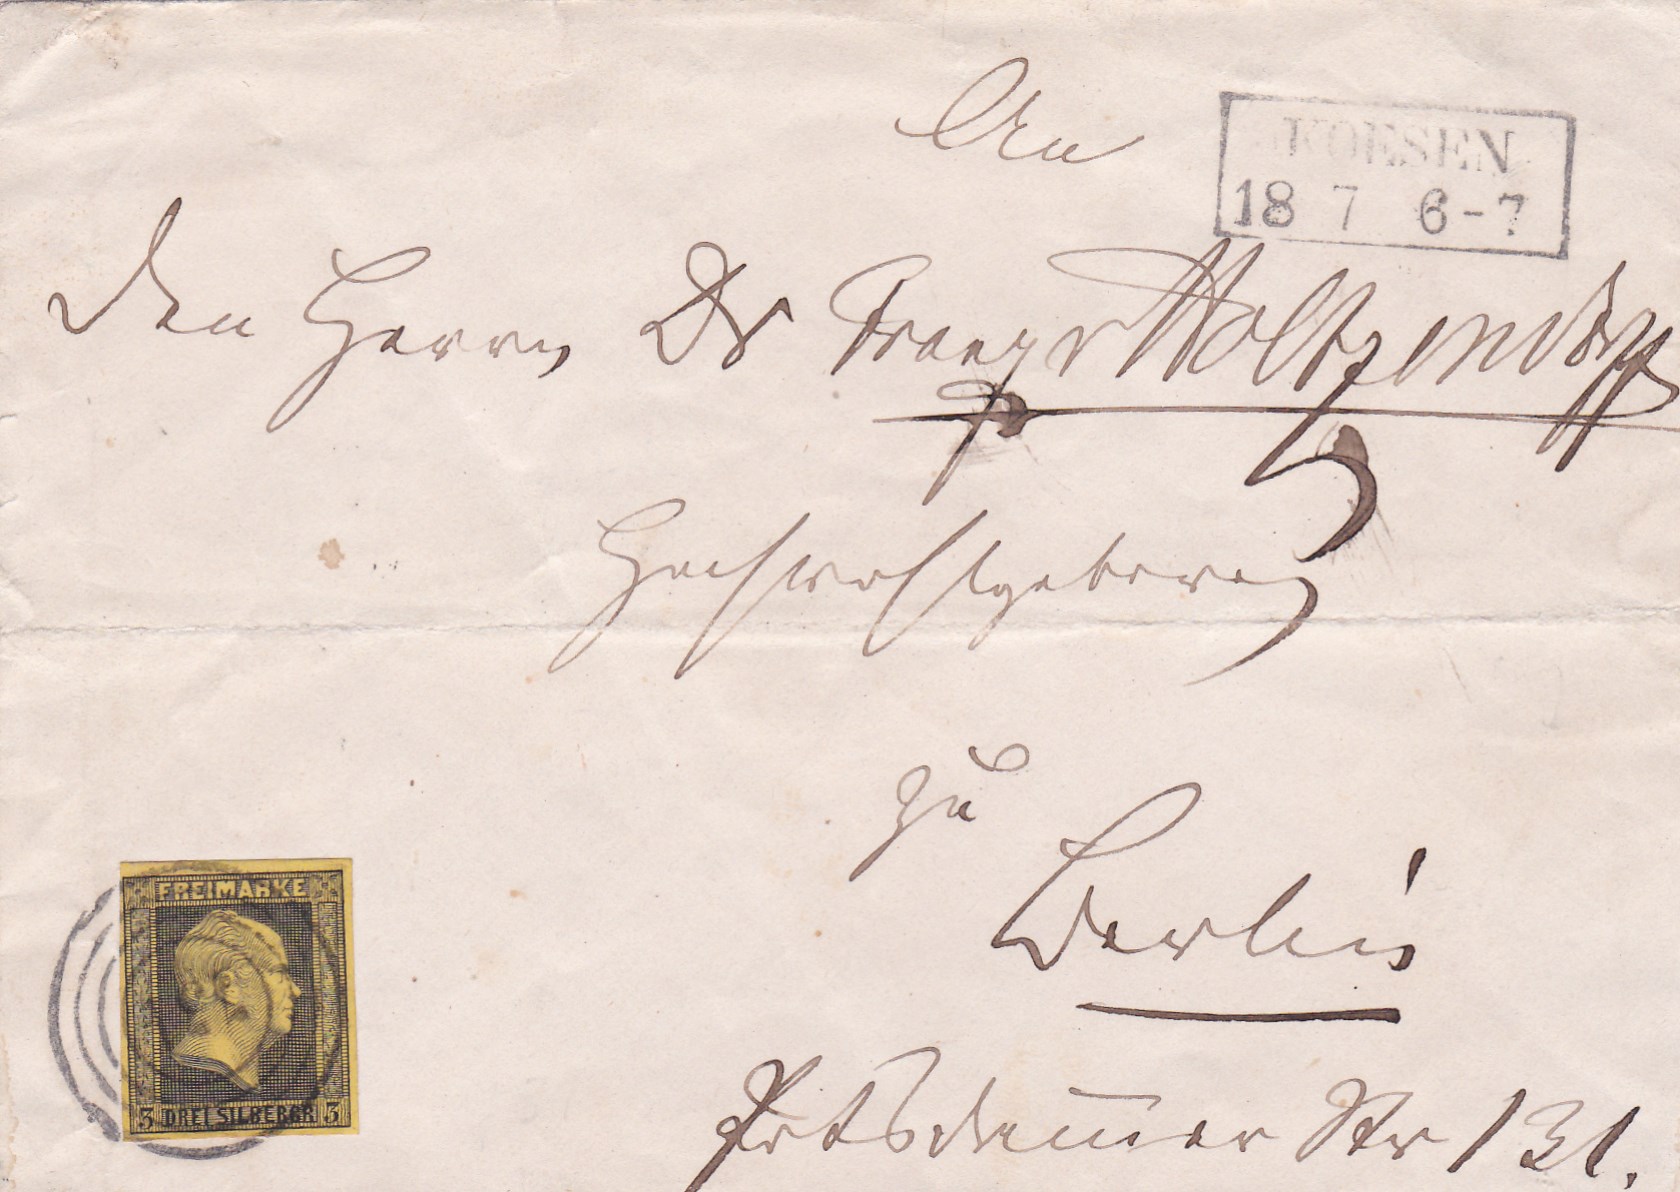 An
KOESEN
18 7 6-7
den Herrn Dr Franz v Holtzendorff
Hochwohlgeboren
zu
Berlin
FREIMARKE
3 DREI SILBERGR 3
Potsdammer Str 131.